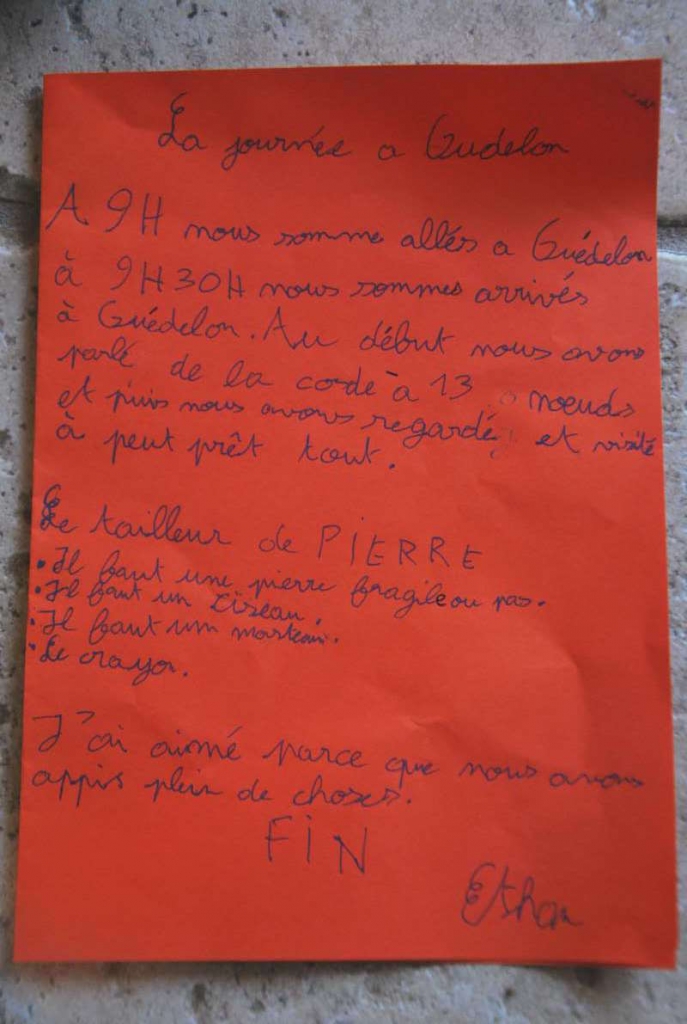 La journée a Gudelon
A 9H nous somme allés a Guédelon
à 9H30H nous sommes arrivés
à Guédelon. Au début nous avons
parlé de la corde à 13 nœuds
et puis nous avons regardé et visité
à peut prêt tout.
Le tailleur de PIERRE
• Il faut une pierre fragile ou pas.
• Il faut un ciseau.
• Il faut un marteau.
• Le crayon.
J'ai aimé parce que nous avons
appis plein de choses.
FIN
Ethan